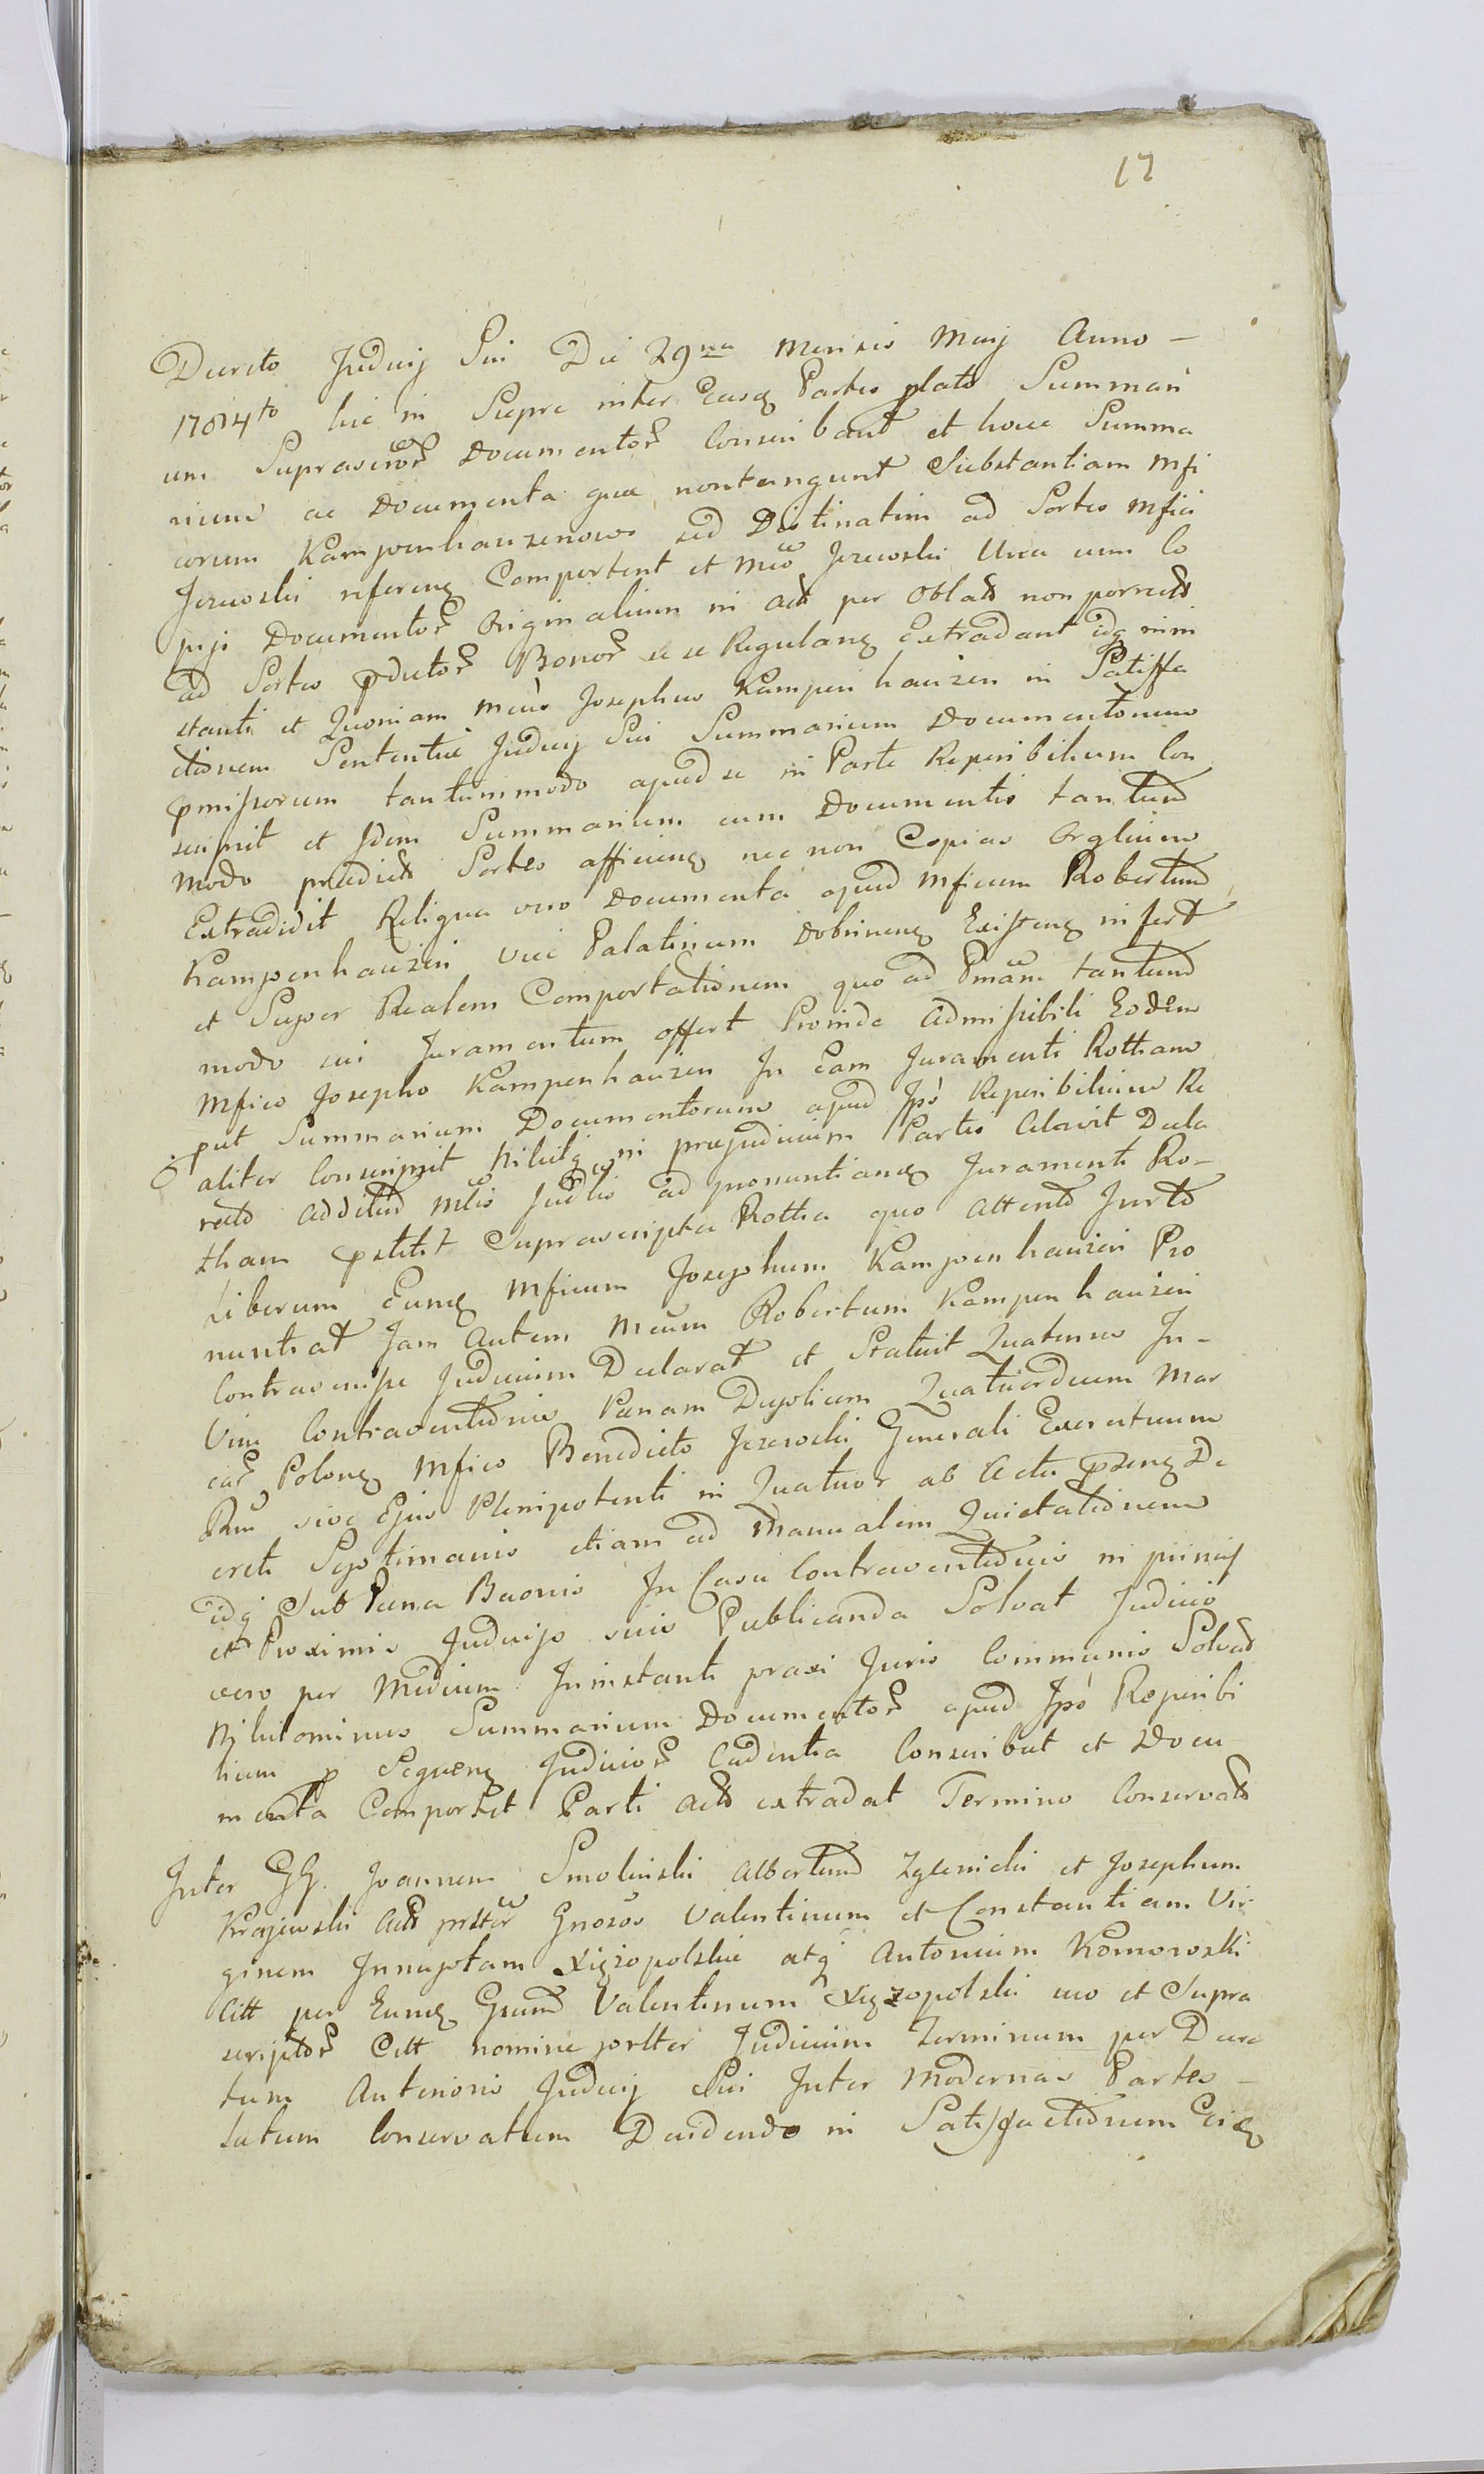 17
Decreto Judicij Sui Die 29na Mensis Maij Anno –
1784to hic in Sierpc inter Easq Partes plato Summari
um Suprascrõr Documentor Conscribant et hocce Summa
rium ac Documenta quæ non tangunt Substantiam Mfi
corum Kampenhauzenow sed Distinatim ad Sortes Mfici
Jezewski referenq Comportent et Mco Jezewski Una cum Co
pji Documentor Originalium in acta per Oblata non porrecta
ad Sortes pdictor Bonor se se Regulanq Extradant idq in in
stanti et Quoniam Mcus Josephus Kampenhauzen in Satisfa
ctionem Sententiæ Judicij Sui Summarium Documentorum
pmissorum tantummodo apud se in Parte Reperibilium Con
scripsit et Idem Summarium cum Documentis tantum
modo prædictas Sortes afficienq nec non Copias Orglium
Extradidit Reliqua vero Documenta apud Mficum Robertum
Kampenhauzen Vice Palatinum Dobrinenq Existenq infert
et Super Realem Comportationem quo ad Pmam tantum
modo sui Juramentum offert Proinde Admissibili Eodem
Mfico Josepho Kampenhauzen In Eam Juramenti Rotham
o put Summarium Documentorum apud Ipo Reperibilium Re
aliter Conscripsit Nihilq in præjudicium Partis Celavit Decla
rato Additus Mlis Judlis ad pronuntianq Juramenti Ro–
tham pstitit Suprascripta Rotha quo attento Jurto
Liberum Eunq Mficum Josephum Kampenhauzen Pro
nuntiat Jam autem Mcum Robertum Kampenhauzen
Contravenisse Judicium Declarat et Statuit Quatenus In–
Vim Contraventionis Pænam Duplicem Quatuordecim Mar
car Polonq Mfico Benedicto Jezewski Generali Exercituum
Rni sive Ejus Plenipotenti in Quatuor ab Actu psenq De
creti Septimanis etiam ad Manualem Quietationem
idq Sub Pæna Bannis In Casu Contraventionis in princ
et Proximis Judicijs suis Publicanda Solvat Judicio
vero per Medium In instanti praxi Juris Communis Solvat
Nihilominus Summarium Documentor apud Ipo Reperibi
lium p Sequenq Judicior Cadentia Conscribat et Docu
menta Comportet Parti acto extradat Termino Conservato
Inter GG. Joannem Smolinski Albertum Zglenicki et Josephum
Krajewski Acto prster Gnosos Valentinum et Constantiam Vir
ginem Innuptam Xięzopolskie atq Antonium Komorowski
Citt per Eunq Gsum Valentinum Xięzopolski suo et Supra
scriptor Citt nomine prster Judicium Terminum per Decre
tum Anterioris Judicij Sui Inter Modernas Partes –
Latum Conservatum Decidendo in Satisfactionem Eiq